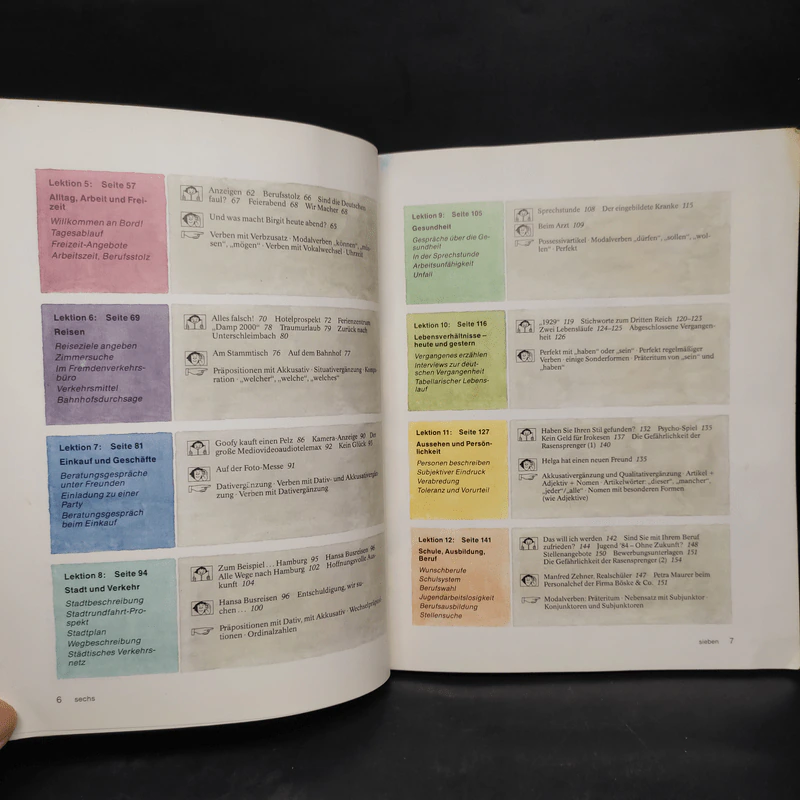 Lektion 5: Seite 57
Alltag, Arbeit und Frei-
zeit
Willkommen an Bord!
Tagesablauf
Freizeit-Angebote
Arbeitszeit, Berufsstolz
Anzeigen 62 Berufsstolz 66 Sind die Deutschen
faul? 67 Feierabend 68 Wir Macher 68
Und was macht Birgit heute abend? 65
Verben mit Verbzusatz · Modalverben „können“, „müs-
sen“, „mögen“ · Verben mit Vokalwechsel · Uhrzeit
Lektion 6: Seite 69
Reisen
Reiseziele angeben
Zimmersuche
Im Fremdenverkehrs-
büro
Verkehrsmittel
Bahnhofsdurchsage
Alles falsch! 70 Hotelprospekt 72 Ferienzentrum
„Damp 2000“ 78 Traumurlaub 79 Zurück nach
Unterschleimbach 80
Am Stammtisch 76 Auf dem Bahnhof 77
Präpositionen mit Akkusativ · Situativergänzung · Kompa-
ration · „welcher“, „welche“, „welches“
Lektion 7: Seite 81
Einkauf und Geschäfte
Beratungsgespräche
unter Freunden
Einladung zu einer
Party
Beratungsgespräch
beim Einkauf
Goofy kauft einen Pelz 86 Kamera-Anzeige 90 Der
große Mediovideoaudiotelemax 92 Kein Glück 93
Auf der Foto-Messe 91
Dativergänzung · Verben mit Dativ- und Akkusativergän-
zung · Verben mit Dativergänzung
Lektion 8: Seite 94
Stadt und Verkehr
Stadtbeschreibung
Stadtrundfahrt-Pro-
spekt
Stadtplan
Wegbeschreibung
Städtisches Verkehrs-
netz
Zum Beispiel . . . Hamburg 95 Hansa Busreisen 96
Alle Wege nach Hamburg 102 Hoffnungsvolle Aus-
kunft 104
Hansa Busreisen 96 Entschuldigung, wir su-
chen . . . 100
Präpositionen mit Dativ, mit Akkusativ · Wechselpräposi-
tionen · Ordinalzahlen
6 sechs
Lektion 9: Seite 105
Gesundheit
Gespräche über die Ge-
sundheit
In der Sprechstunde
Arbeitsunfähigkeit
Unfall
Sprechstunde 108 Der eingebildete Kranke 115
Beim Arzt 109
Possessivartikel · Modalverben „dürfen“, „sollen“, „wol-
len“ · Perfekt
Lektion 10: Seite 116
Lebensverhältnisse –
heute und gestern
Vergangenes erzählen
Interviews zur deut-
schen Vergangenheit
Tabellarischer Lebens-
lauf
„1929“ 119 Stichworte zum Dritten Reich 120–123
Zwei Lebensläufe 124–125 Abgeschlossene Vergangen-
heit 126
Perfekt mit „haben“ oder „sein“ · Perfekt regelmäßiger
Verben · einige Sonderformen · Präteritum von „sein“ und
„haben“
Lektion 11: Seite 127
Aussehen und Persön-
lichkeit
Personen beschreiben
Subjektiver Eindruck
Verabredung
Toleranz und Vorurteil
Haben Sie Ihren Stil gefunden? 132 Psycho-Spiel 133
Kein Geld für Irokesen 137 Die Gefährlichkeit der
Rasensprenger (1) 140
Helga hat einen neuen Freund 135
Akkusativergänzung und Qualitativergänzung · Artikel +
Adjektiv + Nomen · Artikelwörter: „dieser“, „mancher“,
„jeder“/„alle“ · Nomen mit besonderen Formen
(wie Adjektive)
Lektion 12: Seite 141
Schule, Ausbildung,
Beruf
Wunschberufe
Schulsystem
Berufswahl
Jugendarbeitslosigkeit
Berufsausbildung
Stellensuche
Das will ich werden 142 Sind Sie mit Ihrem Beruf
zufrieden? 144 Jugend '84 – Ohne Zukunft? 148
Stellenangebote 150 Bewerbungsunterlagen 151
Die Gefährlichkeit der Rasensprenger (2) 154
Manfred Zehner, Realschüler 147 Petra Maurer beim
Personalchef der Firma Böske & Co. 151
Modalverben: Präteritum · Nebensatz mit Subjunktor ·
Konjunktoren und Subjunktoren
sieben 7